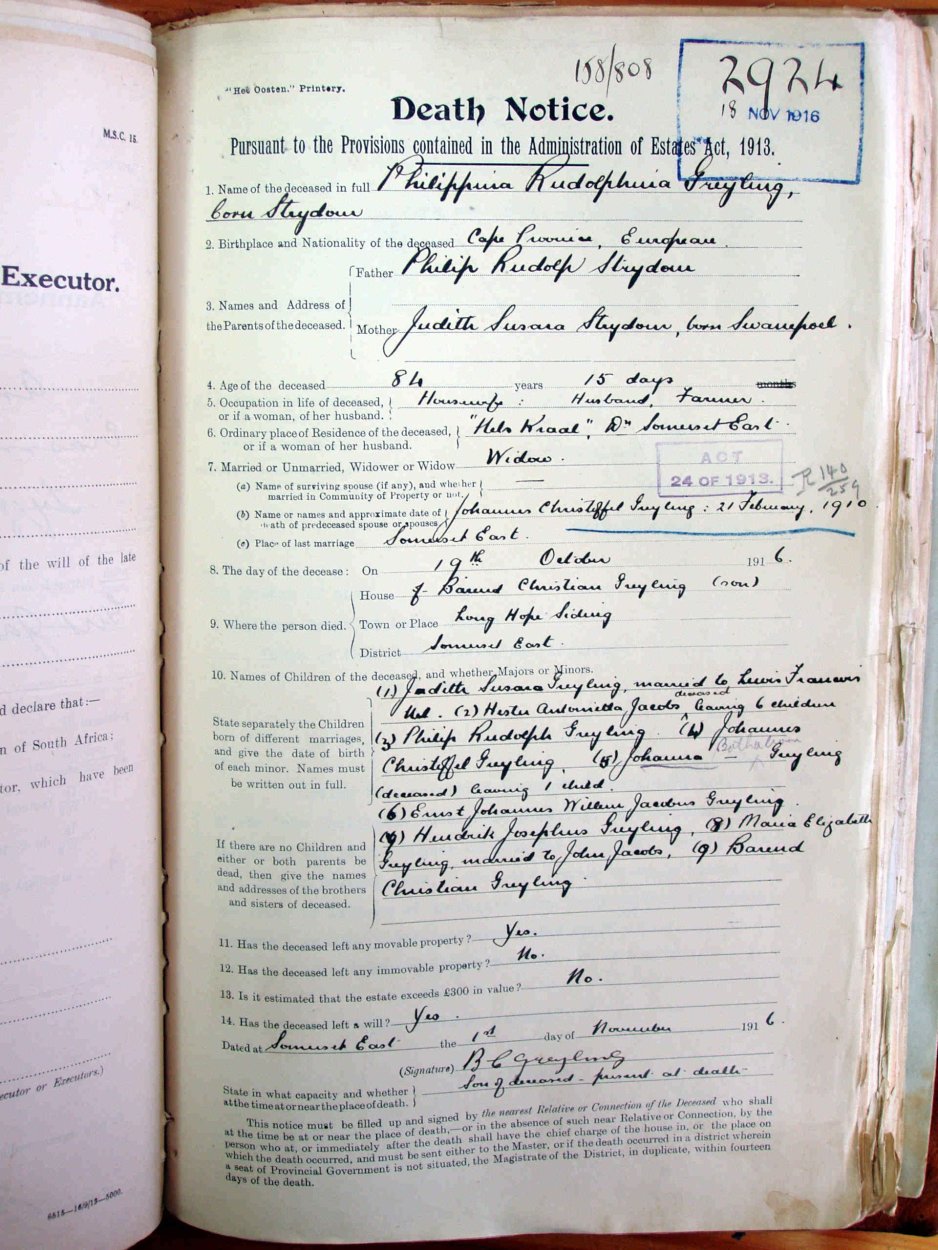 158/808
2924
18 NOV 1916
"Het Oosten." Printery.
Death Notice.
Pursuant to the Provisions contained in the Administration of Estates Act, 1913.
1. Name of the deceased in full Philippina Rudolphina Greyling,
born Strydom
2. Birthplace and Nationality of the deceased Cape Province, European.
Father Philip Rudolf Strydom
3. Names and Address of
the Parents of the deceased.
Mother Judith Susara Strydom, born Swanepoel.
4. Age of the deceased 84 years 15 days months
5. Occupation in life of deceased, Housewife: Husband, Farmer.
or if a woman, of her husband.
6. Ordinary place of Residence of the deceased, "Hels Kraal", Dn Somerset East.
or if a woman of her husband.
7. Married or Unmarried, Widower or Widow Widow.
ACT
24 OF 1913.
140/259
(a) Name of surviving spouse (if any), and whether —
married in Community of Property or not.
(b) Name or names and approximate date of Johannes Christoffel Greyling: 21 February, 1910
death of predeceased spouse or spouses
(c) Place of last marriage Somerset East.
8. The day of the decease: On 19th October 1916.
House of Barend Christian Greyling (son)
9. Where the person died. Town or Place Long Hope Siding
District Somerset East.
10. Names of Children of the deceased, and whether Majors or Minors.
(1) Judith Susara Greyling, married to Lewis Francois
Nel. (2) Hester Antonietta Jacobs deceased leaving 6 children
State separately the Children
born of different marriages,
and give the date of birth
of each minor. Names must
be written out in full.
(3) Philip Rudolph Greyling (4) Johannes
Christoffel Greyling, (5) Johanna — Greyling
(deceased) leaving 1 child.
(6) Ernst Johannes Willem Jacobus Greyling.
(7) Hendrik Josephus Greyling, (8) Maria Elizabeth
Greyling, married to John Jacobs, (9) Barend
Christian Greyling.
If there are no Children and
either or both parents be
dead, then give the names
and addresses of the brothers
and sisters of deceased.
11. Has the deceased left any movable property? Yes.
12. Has the deceased left any immovable property? No.
13. Is it estimated that the estate exceeds £300 in value? No.
14. Has the deceased left a will? Yes.
Dated at Somerset East the 1st day of November 1916.
(Signature) B C Greyling
Son of deceased - present at death -
State in what capacity and whether
at the time at or near the place of death.
This notice must be filled up and signed by the nearest Relative or Connection of the Deceased who shall
at the time be at or near the place of death,—or in the absence of such near Relative or Connection, by the
person who at, or immediately after the death shall have the chief charge of the house in, or the place on
which the death occurred, and must be sent either to the Master, or if the death occurred in a district wherein
a seat of Provincial Government is not situated, the Magistrate of the District, in duplicate, within fourteen
days of the death.
M.S.C. 15.
Executor.
of the will of the late
d declare that:—
n of South Africa;
tor, which have been
ecutor or Executors.)
6515—16/9/15—5000.